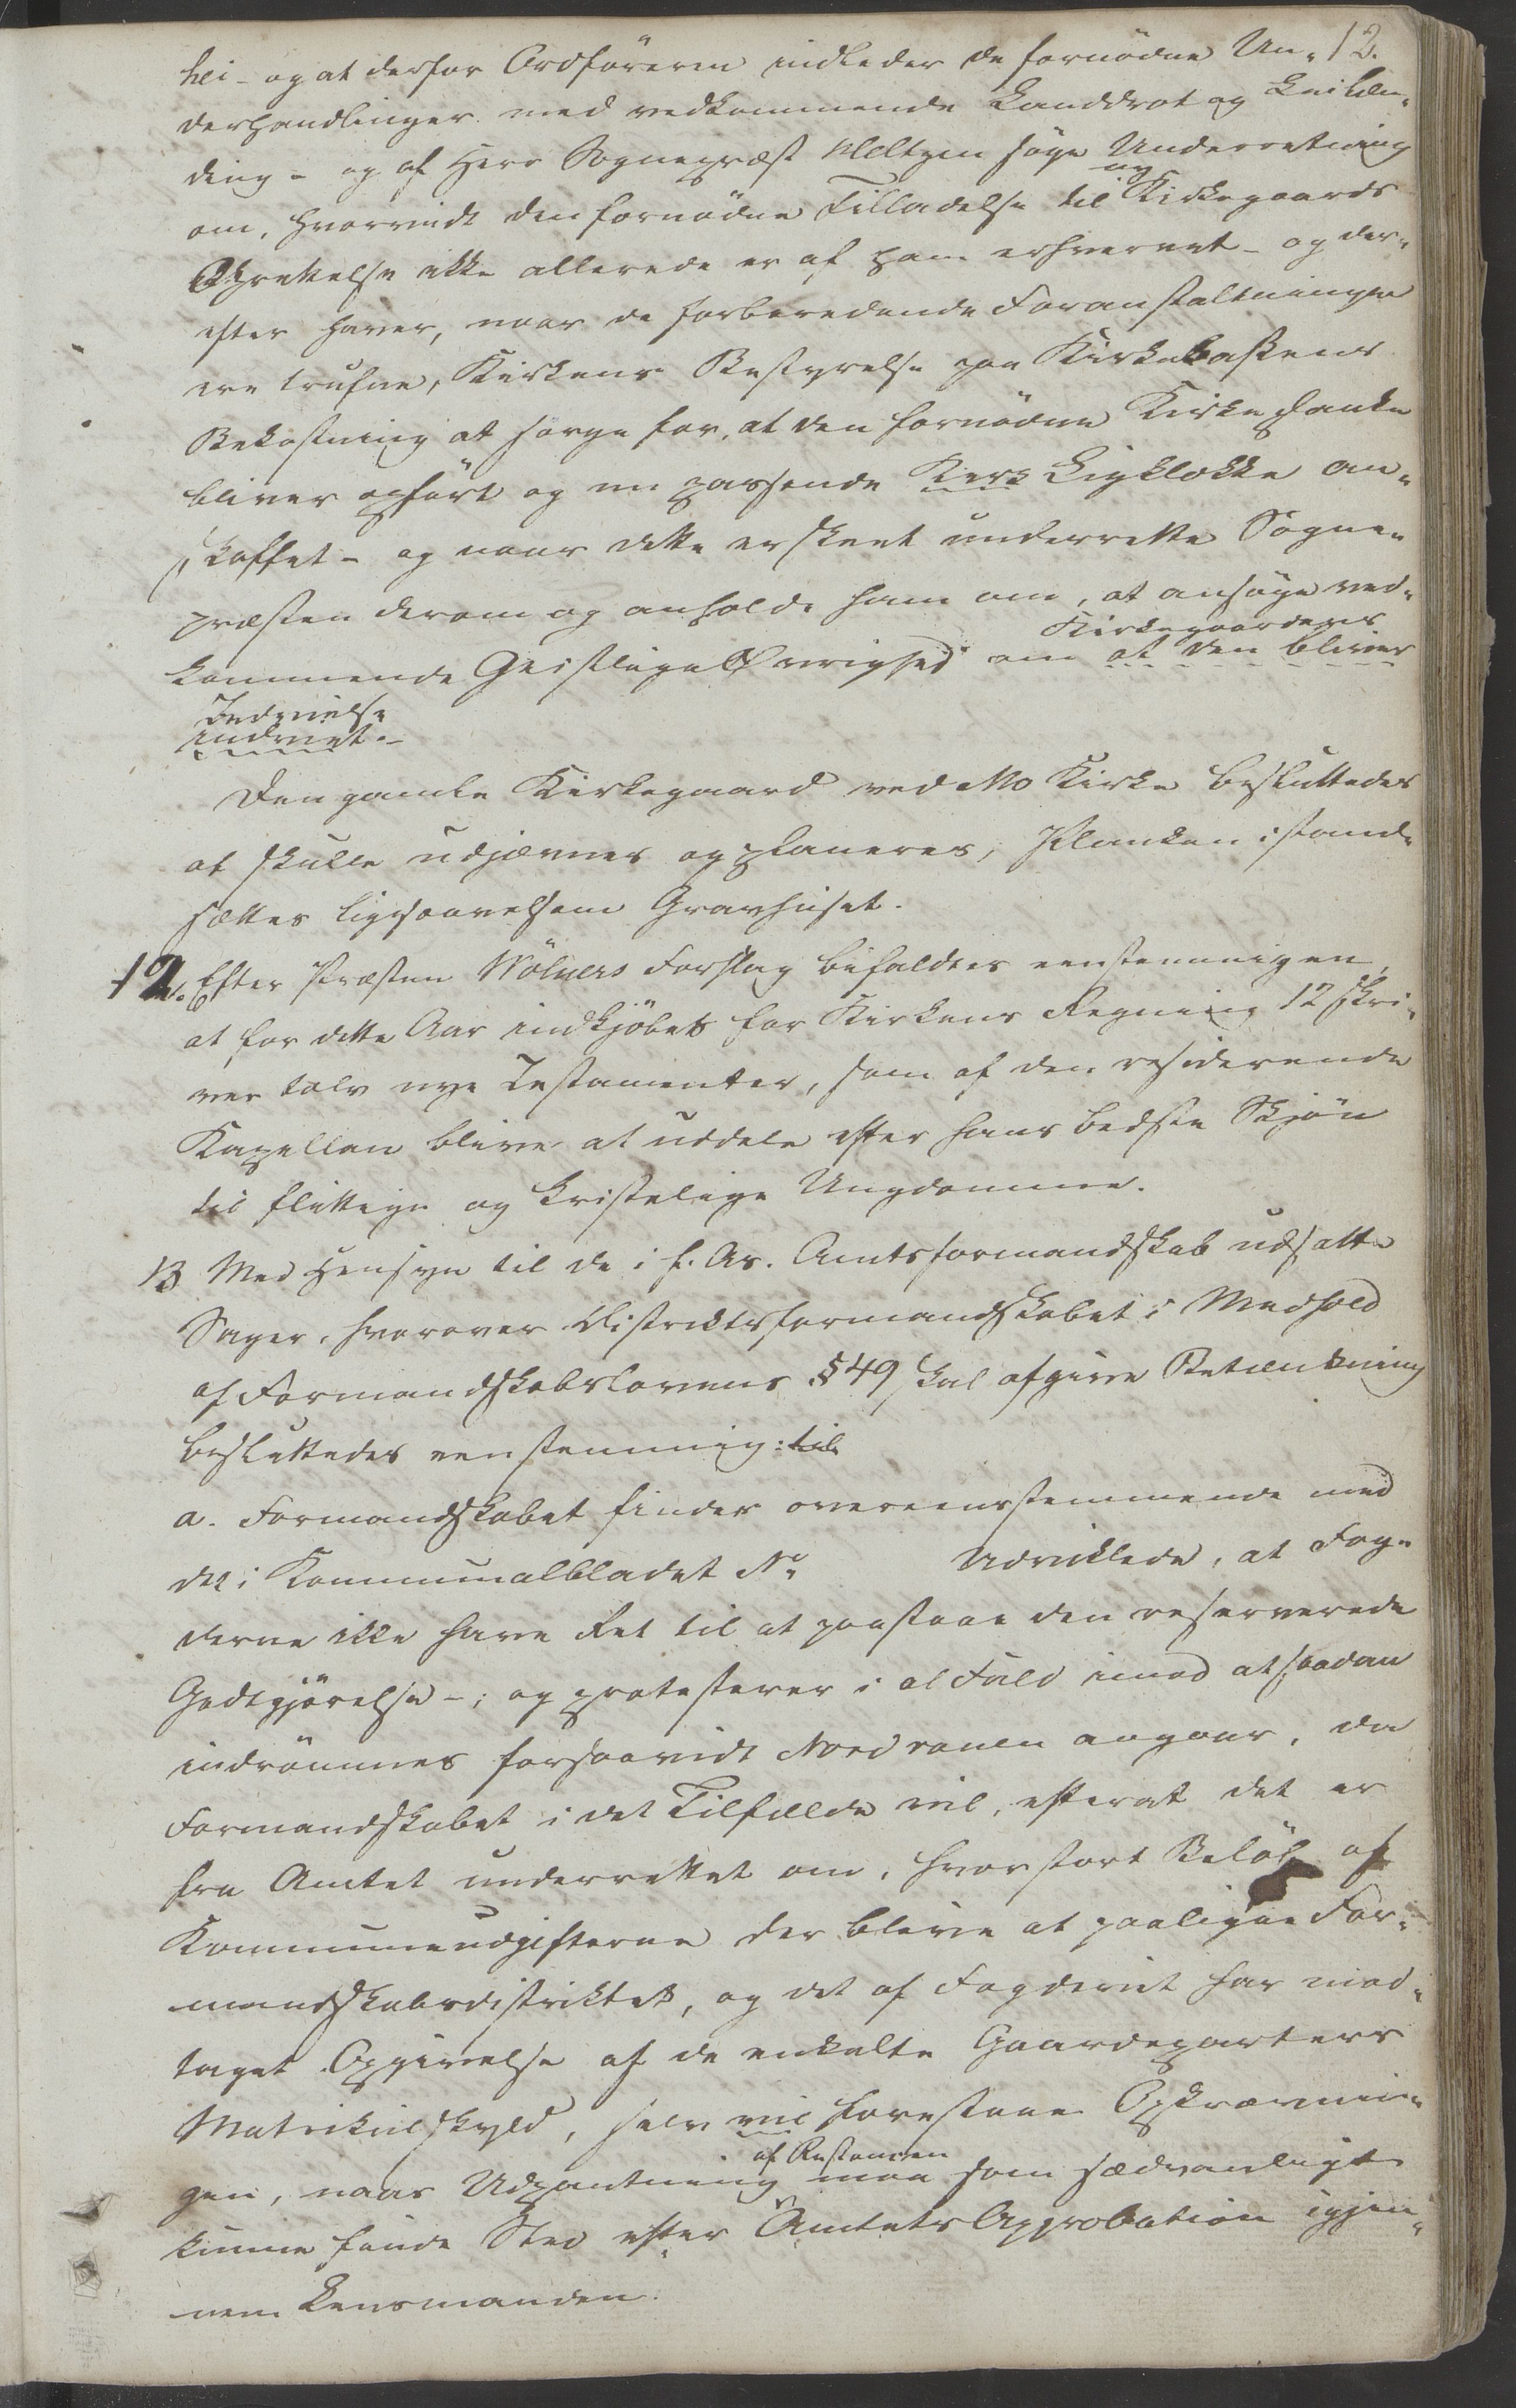 12.
hei - og at derfor Ordföreren indleder de fornödne Un-
derhandlinger med vedkommende Landdrot og Leilen-
ding - og af Herr Sognepræst Meltzen söge Underretning
om, hvorvidt den fornödne Tilladelse til ny Kirkegaards
Oprettelse ikke allerede er af ham erhvervet - og der-
efter haver, naar de forberedende Foranstaltninger
ere trufne, Kirkens Bestyrelse paa Kirkekassens
Bekostning at sörge for, at den fornödne Kirkeplanke
bliver opfört og en passende Kirk Ligklokke an-
skaffet - og naar dette er skeet underrette Sogne-
præsten derom og anholde ham om, at ansöge ved-
Kirkegaardens
kommende Geistlige Övrighed om at den bliver
Indvielse
indviet. -
Den gamle Kirkegaard ved Mo Kirke besluttedes
at skulle udjævnes og planeres, Planken istand-
sættes ligesaavelsom Gravhuset.
12. Efter Præsten Wölners Forslag bifaldtes eenstemmigen,
at for dette Aar indkjöbes for Kirkens Regning 12 skri-
ver tolv nye Testamenter, som af den residerende
Kapellan blive at uddele efter hans bedste Skjön
til flittige og kristelige Ungdomme.
13 Med Hensyn til de i f. Ar. Amtsformandskab udsatte
Sager, hvorover Distriktsformandskabet i Medhold
af Formandskabslovens § 49 skal afgive Betænkning
besluttedes eenstemmig: til
a. Formandskabet finder overeensstemmende med
det i Kommunalbladet No Udviklede, at Fog-
derne ikke have Ret til at paastaae den reserverede
Godtgjörelse -; og protesterer i al Fald imod at saadan
indrömmes forsaavidt Nordranen angaar, da
Formandskabet i det Tilfælde vil, efterat det er
fra Amtet underrettet om, hvor stort Belöb af
Kommuneudgifterne der blive at paaligne For-
mandskabsdistriktet, og det af Fogderiet har mod-
taget Opgivelse af de enkelte Gaardeparters
Matrikulskyld, selv vil forestaae Opkrævnin-
gen, naar Udpantning af Restancen maa som sædvanligt
kunne finde Sted efter Amtets Approbation igjen-
nem Lensmanden.